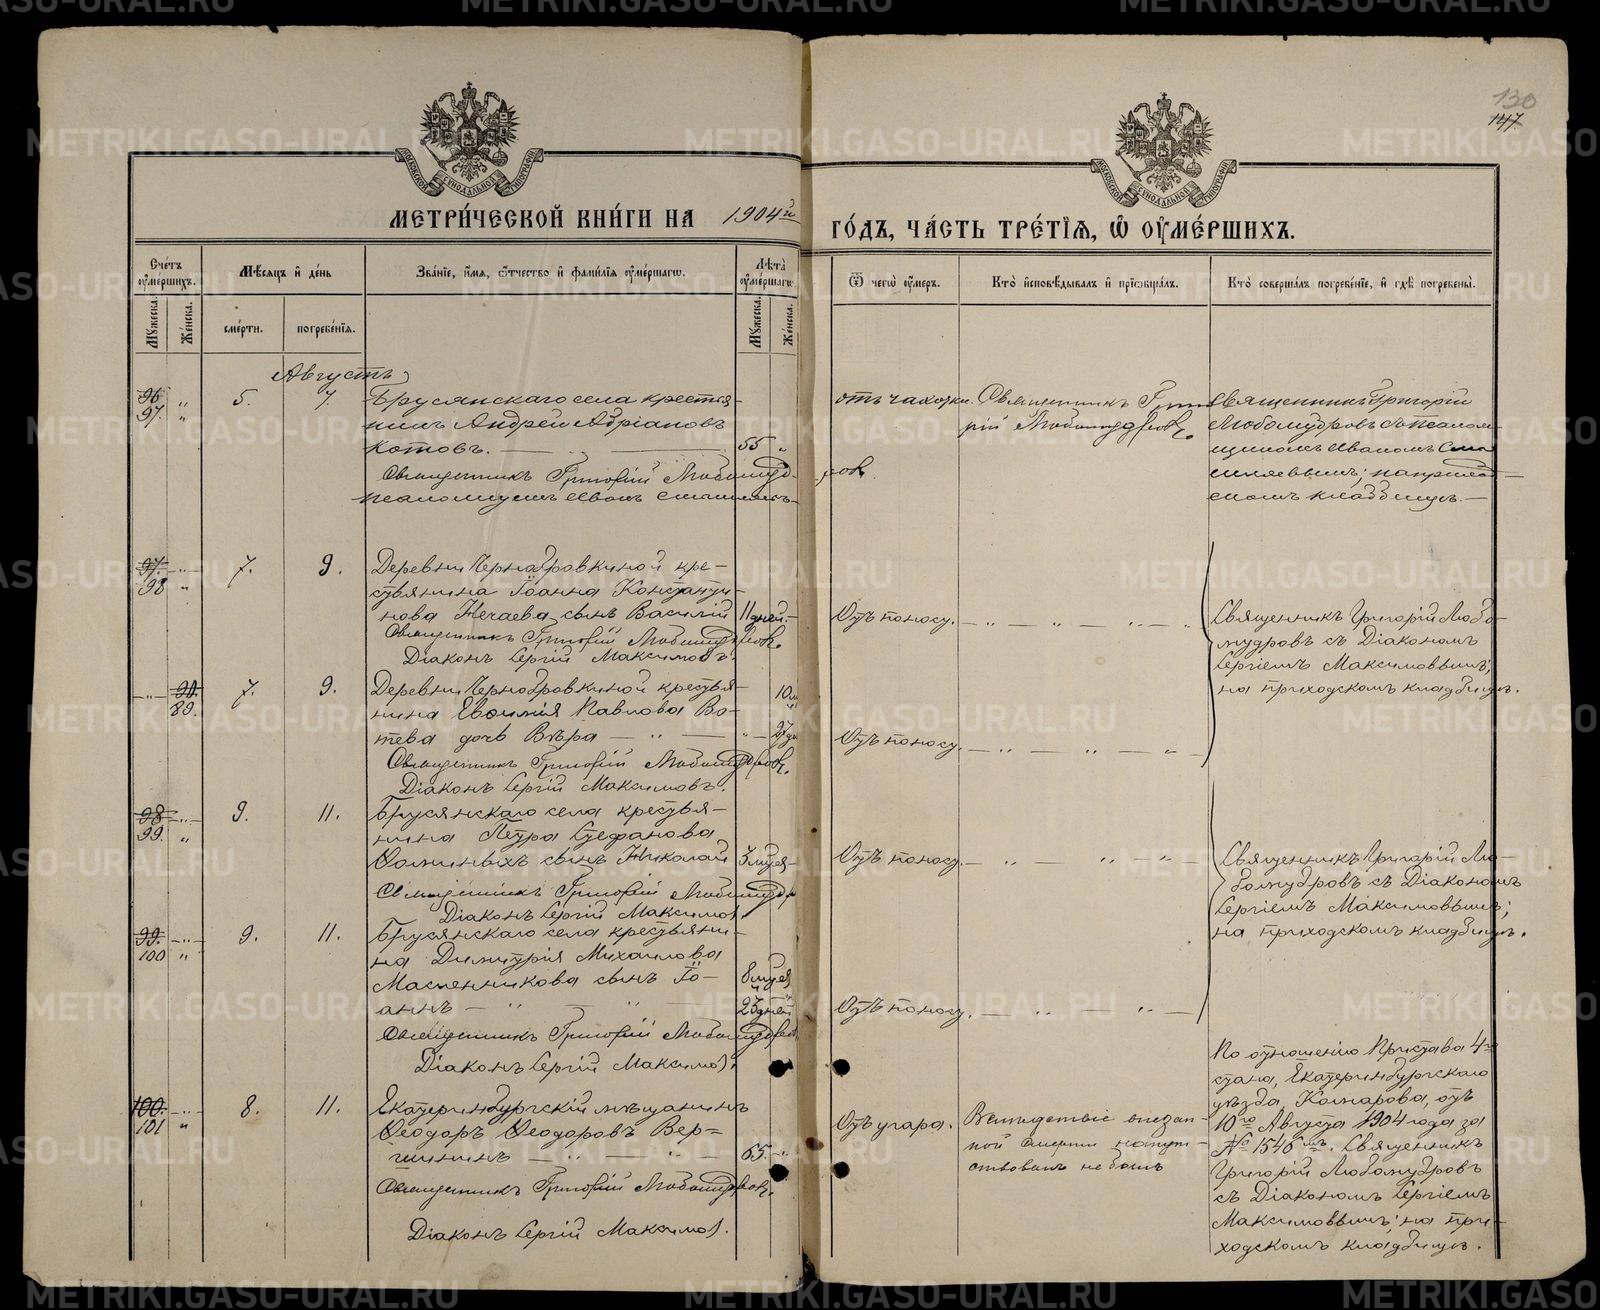 130
147.
МОСКОВСКОЙ СѴНОДАЛЬНОЙ ТИПОГРАФІИ
МОСКОВСКОЙ СѴНОДАЛЬНОЙ ТИПОГРАФІИ
МЕТРИ́ЧЕСКОЙ КНИ́ГИ НА 1904й
ГО́ДЪ, ЧА́СТЬ ТРЕ́ТІѦ, Ѿ ОУ҆МЕ́РШИХЪ.
Сче́тъ оу҆ме́ршихъ.
Мꙋжеска.
Же́нска.
Мѣ́сѧцъ и҆ де́нь
сме́рти.
погребе́нїѧ.
Зва́нїе, и҆́мѧ, ѻ҆́тчество и҆ фами́лїѧ оу҆ме́ршагѡ.
Лѣ́та оу҆ме́ршагѡ.
Мꙋжеска.
Же́нска.
Ѿ чегѡ̀ оу҆́меръ.
Кто̀ и҆сповѣ́дывалъ и҆ прїѡбща́лъ.
Кто̀ соверша́лъ погребе́нїе, и҆ гдѣ̀ погребены̀.
Августъ
96 97. „ 5. 7. Брусянскаго села крестья-
нинъ Андрей Адріановъ
Котовъ. 55 „
Священникъ Григорій Любомудровъ
псаломщикъ Иванъ
отъ чахотки. Священникъ Григо-
рій Любомудровъ.
священникъ Григорій
Любомудровъ съ псалом-
щикомъ Иваномъ
на приход-
скомъ кладбищѣ.
97. 98 „ 7. 9. Деревни Чернобровкиной кре-
стьянина Іоанна Константи-
нова Нечаева сынъ Василій 11 дней.
Священникъ Григорій Любомудровъ.
Діаконъ Сергій Максимовъ.
Отъ поносу. — „ — „ — „ —
Священникъ Григорій Любо-
мудровъ съ Діакономъ
Сергіемъ Максимовымъ;
на приходскомъ кладбищѣ.
— „ — 90. 89. 7. 9. Деревни Чернобровкиной крестья- 10 м
нина Евѳимія Павлова Во- и
тева дочь Вѣра — „ — „ — 27 дн
Священникъ Григорій Любомудровъ.
Діаконъ Сергій Максимовъ.
Отъ поносу. — „ — „ — „ —
98 99. „ 9. 11. Брусянскаго села крестья-
нина Петра Стефанова
Ѳоминыхъ сынъ Николай 3 мѣсяц
Священникъ Григорій Любомудров
Діаконъ Сергій Максимов
Отъ поносу. — „ — „ — „ —
Священникъ Григорій Лю-
бомудровъ съ Діакономъ
Сергіемъ Максимовымъ;
на приходскомъ кладбищѣ.
99. 100 „ 9. 11. Брусянскаго села крестьяни-
на Димитрія Михаилова
Масленникова сынъ Іо- 8 мѣсяц
аннъ — „ — „ — 23 дней
Священникъ Григорій Любомудровъ
Діаконъ Сергій Максимов.
Отъ поносу. — „ — „ —
100. 101 „ 8. 11. Екатеринбургскій мѣщанинъ
Ѳеодоръ Ѳеодоровъ Вер=
шининъ — „ — „ — 65. „
Священникъ Григорій Любомудровъ.
Діаконъ Сергій Максимов.
Отъ угара. Вслѣдствіе внезап-
ной смерти напут-
ствованъ не былъ
По отношенію Пристава 4го
стана, Екатеринбургскаго
уѣзда, Комарова, отъ
10го Августа 1904 года за
№ 1546мъ. Священникъ
Григорій Любомудровъ
съ Діакономъ Сергіемъ
Максимовымъ; на при-
ходскомъ кладбищѣ.
METRIKI.GASO-URAL.RU